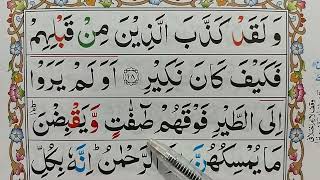 وَلَقَدْ كَذَّبَ الَّذِيْنَ مِنْ قَبْلِهِمْ
فَكَيْفَ كَانَ نَكِيْرِ ۝۱۸ اَوَلَمْ يَرَوْا
اِلَى الطَّيْرِ فَوْقَهُمْ صٰٓفّٰتٍ وَّيَقْبِضْنَ
مَا يُمْسِكُهُنَّ الرَّحْمٰنُ اِنَّهٗ بِكُلِّ